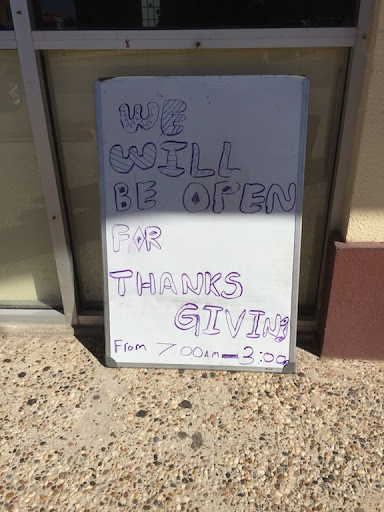 WE
WILL
BE OPEN
FOR
THANKS
GIVING
From 7:00AM-3:00